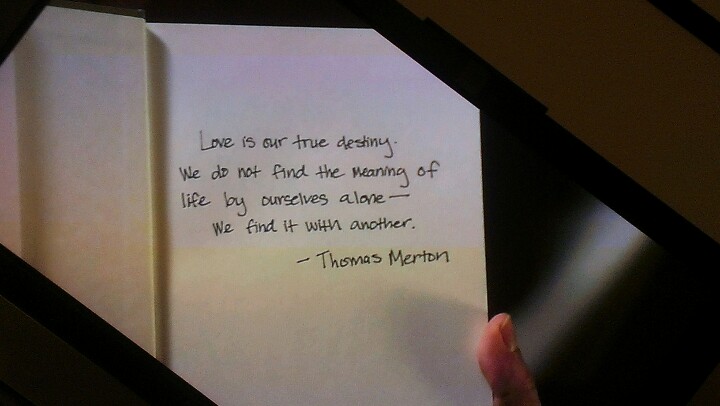 Love is our true destiny.
We do not find the meaning of
life by ourselves alone—
We find it with another.
- Thomas Merton